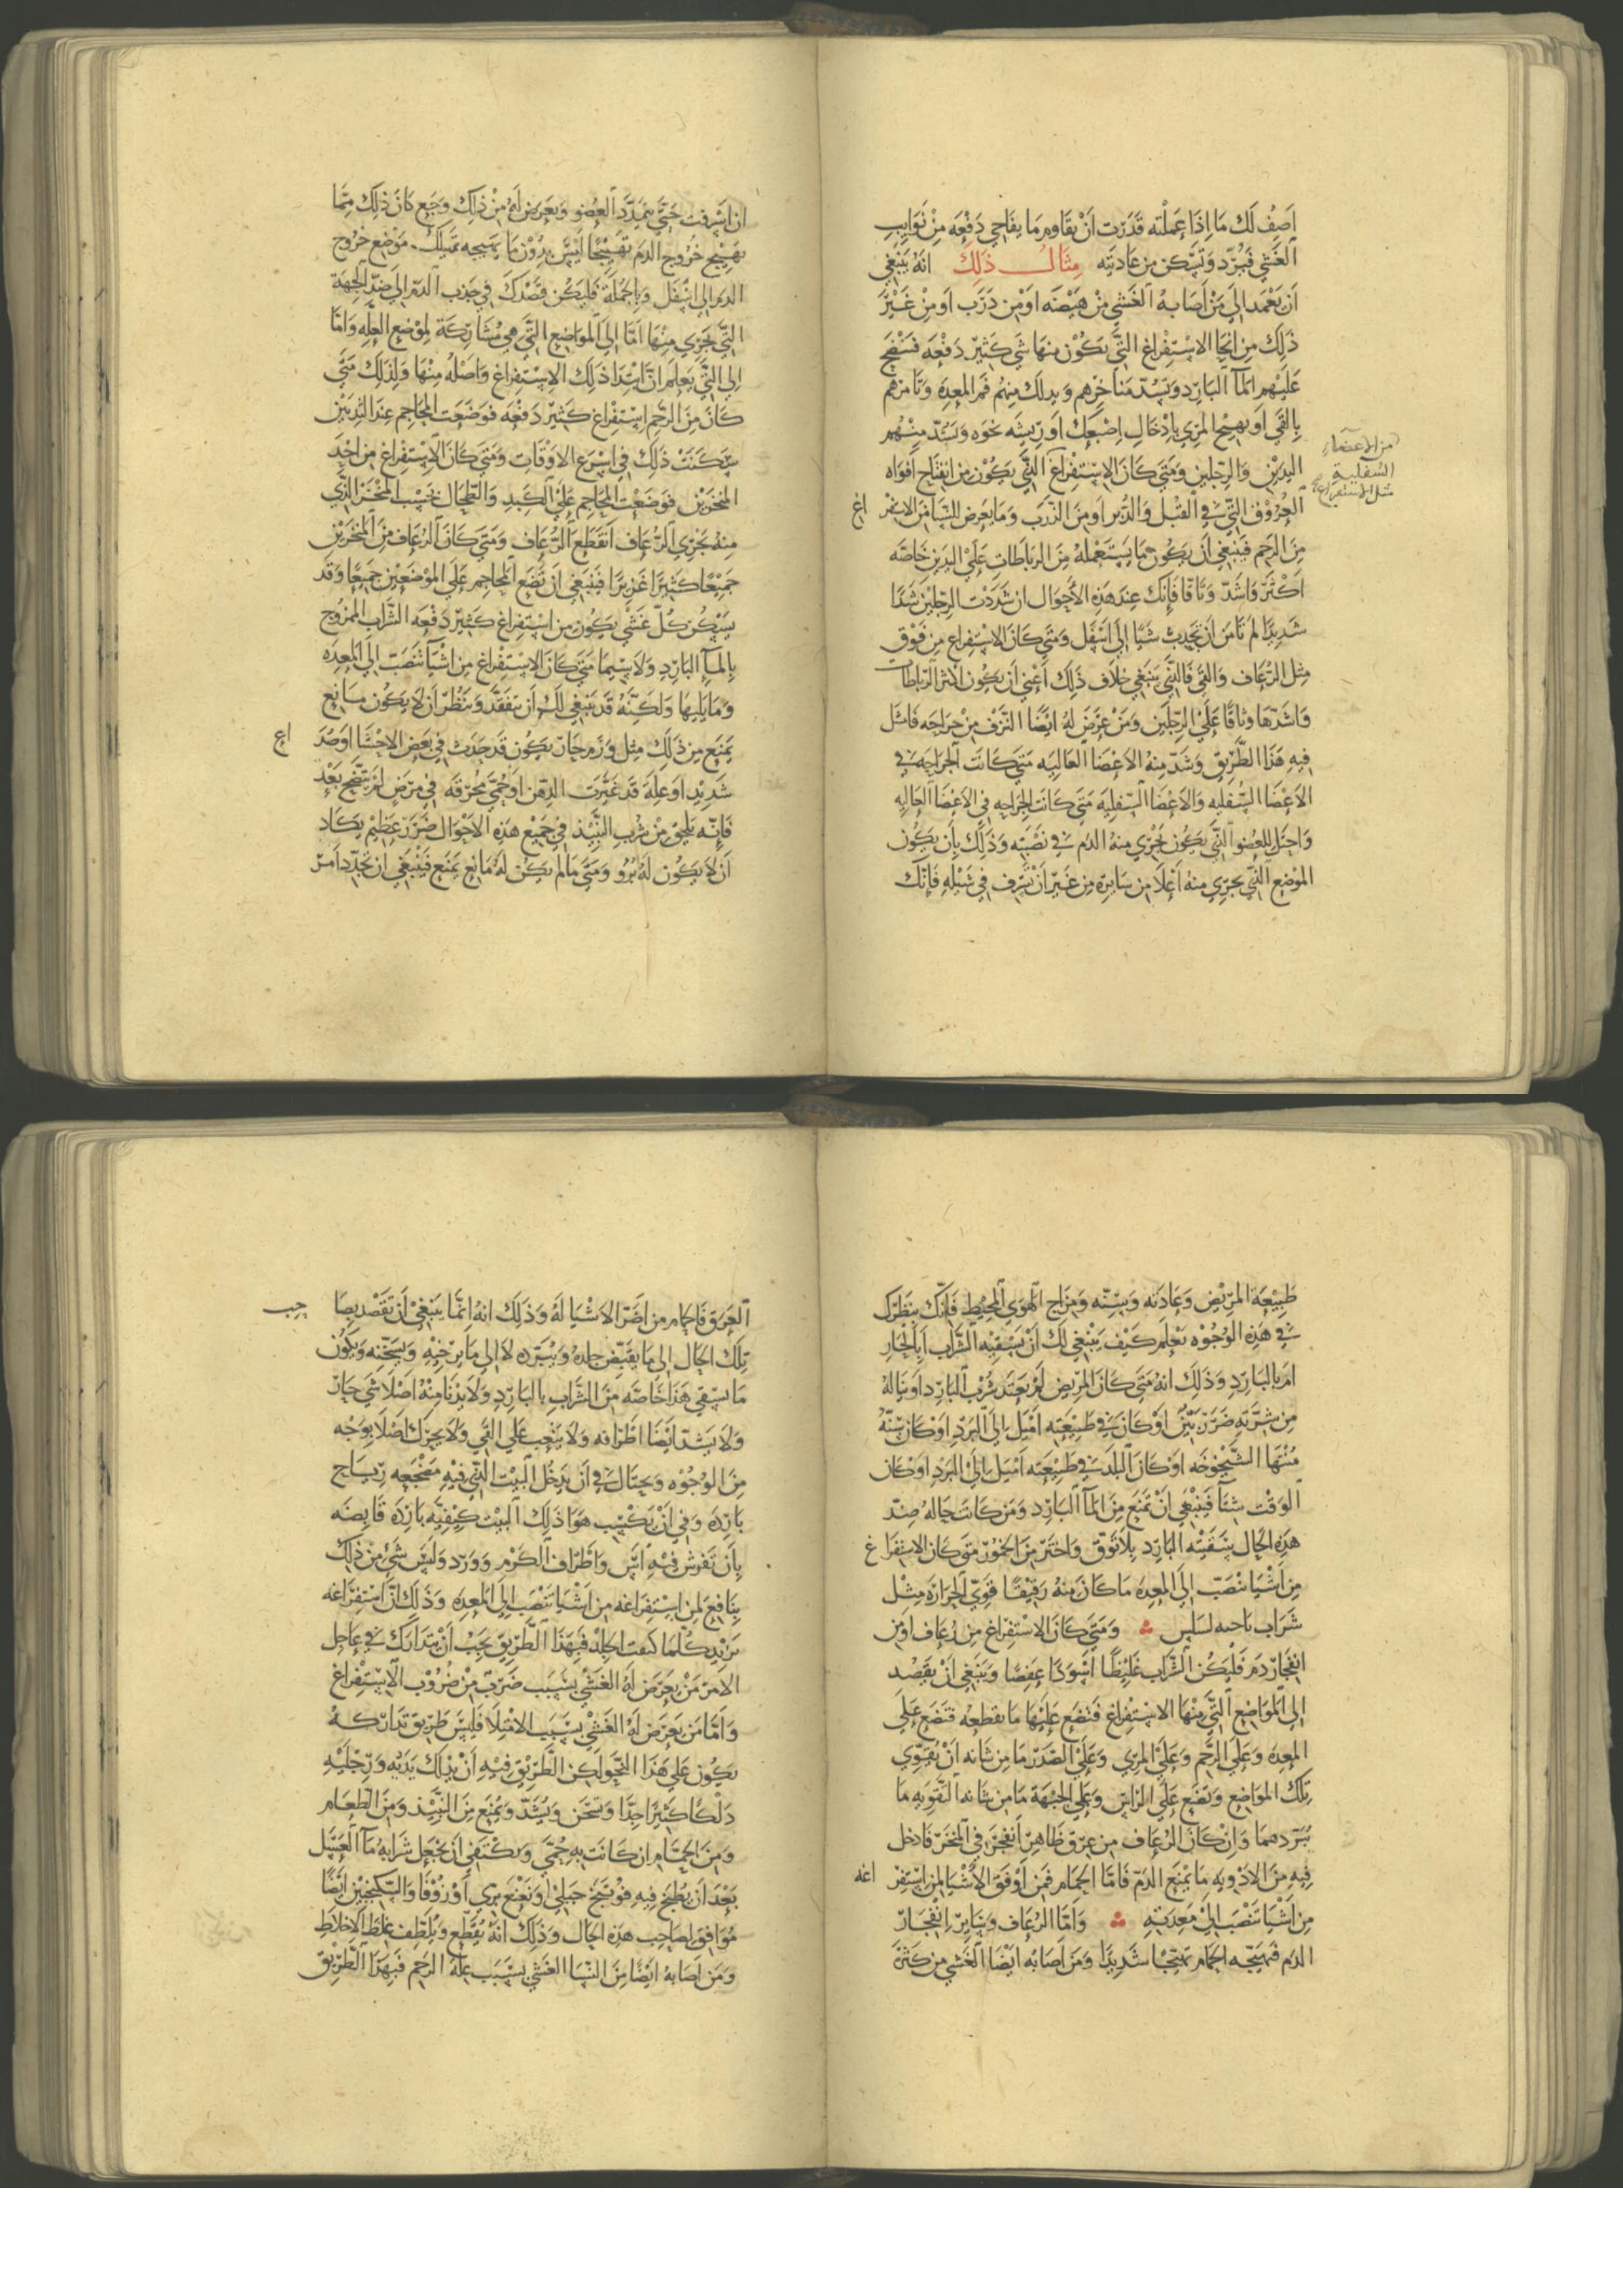 اصف لك ما اذا عملته قدرت ان تقاوم ما يفاجي دفعه من نوايب
الغشي فيبرد ويسكن من عاديته مثال ذلك انه ينبغي
ان يعمد الي من اصابه الغشي من هيضه او من ذرب او من غير
ذلك من انحا الاستفراغ التي يكون منها شي كثير دفعه فتنضح
عليهم المآ البارد وتسد مناخرهم وتدلك منهم فم المعده وتامرهم
بالقي او تهيج المري بادخال اصبعك او ريشه نحوه وتشد منهم
اليدين والرجلين ومتي كان الاستفراغ الذي يكون من انفتاح افواه
من الاعضاء
السفلية
مثل الاستفراغ
العروق التي في القبل والدبر او من الذرب وما يعرض للنسا من الاستفراغ
من الرحم فينبغي ان يكون ما يستعمله من الرباطات علي اليدين خاصه
اكثر واشد وثاقا فانك عند هذه الاحوال ان شددت الرجلين شدا
شديدا لم تامن ان تجذب شيا الي اسفل ومتي كان الاستفراغ من فوق
مثل الرعاف والقي فالذي ينبغي خلاف ذلك اعني ان يكون اكثر الرباطات
واشدها وثاقا علي الرجلين ومن عرض له ايضا النزف من جراحه فامثل
فيه هذا الطريق وشد منه الاعضا العاليه متي كانت الجراحه في
الاعضا السفليه والاعضا السفليه متي كانت الجراحه في الاعضا العاليه
واحتل للعضو الذي يكون يجري منه الدم في نصبته وذلك بان يكون
الموضع الذي يجري منه اعلا من سايره من غير ان تسرف في شيله فانك
ان اسرفت حتي يتمدد العضو ويعرض له من ذلك وجع كان ذلك مما
يهيج خروج الدم تهييجا ليس بدون ما يهيجه تمييلك موضع خروج
الدم الي اسفل وبالجملة فليكن قصدك في جذب الدم الي ضد الجهة
التي يجري منها اما الي المواضع التي هي مشاركة لموضع العله واما
الي التي يعلم ان ابتدا ذلك الاستفراغ واصله منها ولذلك متي
كان من الرحم استفراغ كثير دفعه فوضعت المحاجم عند الثديين
سكنت ذلك في اسرع الاوقات ومتي كان الاستفراغ من احد
المنخرين فوضعت المحاجم علي الكبد والطحال بحسب المنخر الذي
منه يجري الرعاف انقطع الرعاف ومتي كان الرعاف من المنخرين
جميعا كثيرا غزيرا فينبغي ان تضع المحاجم علي الموضعين جميعا وقد
يسكن كل غشي يكون من استفراغ كثير دفعه الشراب الممزوج
بالمآ البارد ولا سيما متي كان الاستفراغ من اشيا تنصب الي المعده
وما يليها ولكنه قد ينبغي لك ان تتفقد وتنظر ان لا يكون مانع
يمنع من ذلك مثل ورم حار يكون قد حدث في بعض الاحشا او صداع
شديد او عله قد غيرت الذهن او حمي محرقه في مرض لم ينضج بعد
فانه يلحق من شرب النبيذ في جميع هذه الاحوال ضرر عظيم يكاد
ان لا يكون له برو ومتي ما لم يكن له مانع يمنع فينبغي ان تحدد امر
طبيعة المريض وعادته وسنه ومزاج الهوي المحيط فانك بنظرك
في هذه الوجوه تعلم كيف ينبغي لك ان تسقيه الشراب ابالحار
ام بالبارد وذلك انه متي كان المريض لم يعتد شرب البارد او يناله
من شربه ضرر بين او كان في طبيعته اميل الي البرد او كان سنه
منتها الشيخوخه او كان البلد في طبيعته اميل الي البرد او كان
الوقت شتآ فينبغي ان تمنع من المآ البارد ومن كانت حاله ضد
هذه الحال سقيته البارد بلا توق واختر من الخمور متي كان الاستفراغ
من اشيا تنصب الي المعده ما كان منه رقيقا قوي الحراره مثل
شراب ومتي كان الاستفراغ من رعاف او من
انفجار دم فليكن الشراب غليظا اسودا عفصا وينبغي ان يقصد
الي المواضع التي منها الاستفراغ فتضع عليها ما يقطعه فتضع علي
المعده وعلي الرحم وعلي المري وعلي الصدر ما من شانه ان يقوي
تلك المواضع وتضع علي الراس وعلي الجبهة ما من شانه التقويه ما
يبردهما وان كان الرعاف من عرق ظاهر انفجر في المنخر فادخل
فيه من الادويه ما يمنع الدم فاما الحمام فمن اوفق الاشيا لمن استفراغه
من اشيا تنصب الي معدته واما الرعاف وساير انفجار
الدم فيهيجه الحمام تهييجا شديدا ومن اصابه ايضا الغشي من كثرة
العرق فالحمام من اضر الاشيا له وذلك انه انما ينبغي ان تقصد بصاحب
تلك الحال الي ما يقبض جلده ويبرده لا الي ما يرخيه ويسخنه ويكون
ما يسقي هذا خاصه من الشراب بالبارد ولا يدنا منه اصلا شي حار
ولا يشد ايضا اطرافه ولا يتعب علي القي ولا يحرك اصلا بوجه
من الوجوه ويحتال في ان يدخل البيت الذي فيه مضجعه رياح
بارده وفي ان يكتسب هوا ذلك البيت كيفيه بارده قابضه
بان تفرش فيه آس واطراف الكرم وورد وليس شي من ذلك
بنافع لمن استفراغه من اشيا تنصب الي المعده وذلك ان استفراغه
يزيد كلما كثف الجلد فبهذا الطريق يجب ان يتدارك في عاجل
الامر من يعرض له الغشي بسبب ضرب من ضروب الاستفراغ
واما من يعرض له الغشي بسبب الامتلا فليس طريق تداركه
يكون علي هذا النحو لكن الطريق فيه ان يدلك يديه ورجليه
دلكا كثيرا جدا وتسخن ويشد ويمنع من النبيذ ومن الطعام
ومن الحمام ان كانت به حمي ويكتفي ان يجعل شرابه مآ العسل
بعد ان يطبخ فيه فوتنج جبلي او نعنع بري او زوفا والسكنجبين ايضا
موافق لصاحب هذه الحال وذلك انه يقطع ويلطف غلظ الاخلاط
ومن اصابه ايضا من النسا الغشي بسبب علة الرحم فبهذا الطريق